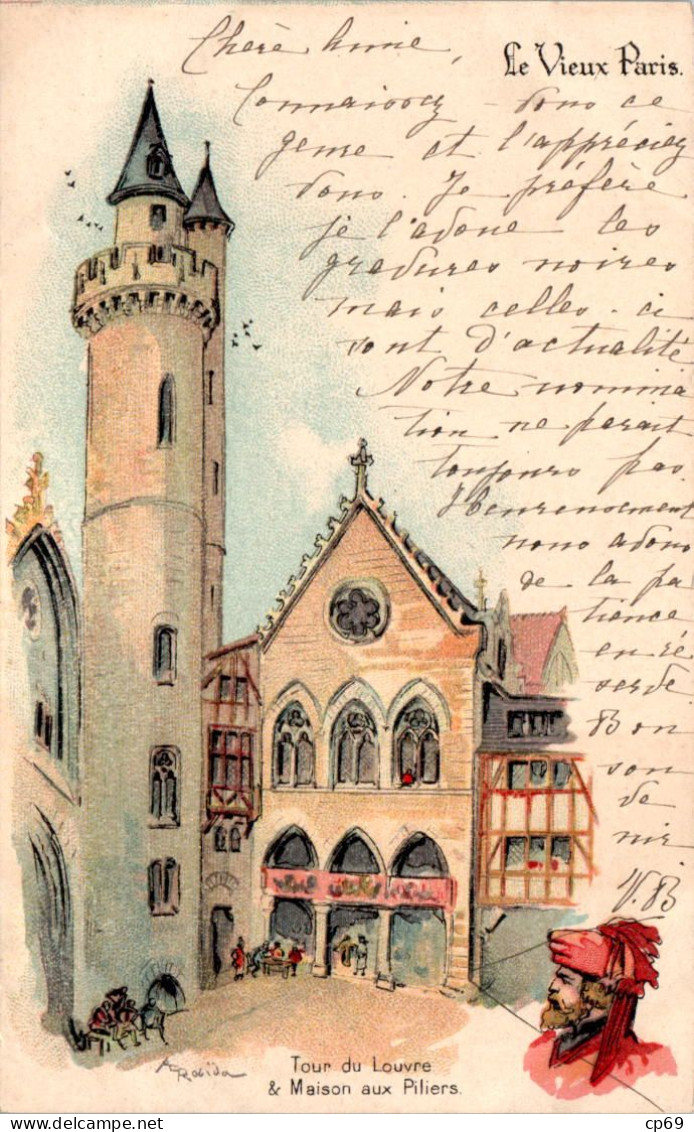 Le Vieux Paris.
Chère Amie,
Connaissez-vous ce
genre et l'appréciez
vous. Je préfère
je l'avoue les
gravures noires
mais celles-ci
sont d'actualité
Notre nomina
tion ne parait
toujours pas.
Heureusement
nous avons
de la pa
tience
en ré
serve.
Bon
sou
ve
nir
V.B
A Robida
Tour du Louvre
& Maison aux Piliers.
delcampe.net
cp69